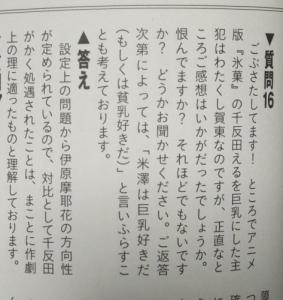 ▼質問16
ごぶさたしてます！　ところでアニメ
版『氷菓』の千反田えるを巨乳にした主
犯はわたくし賀東なのですが、正直なと
ころご感想はいかがだったでしょうか。
恨んでますか？　それほどでもないです
か？　どうかお聞かせください。ご返答
次第によっては、「米澤は巨乳好きだ
（もしくは貧乳好きだ）」と言いふらすこ
とも考えております。
▲答え
設定上の問題から伊原摩耶花の方向性
が定められているので、対比として千反田
がかく処遇されたことは、まことに作劇
上の理に適ったものと理解しております。